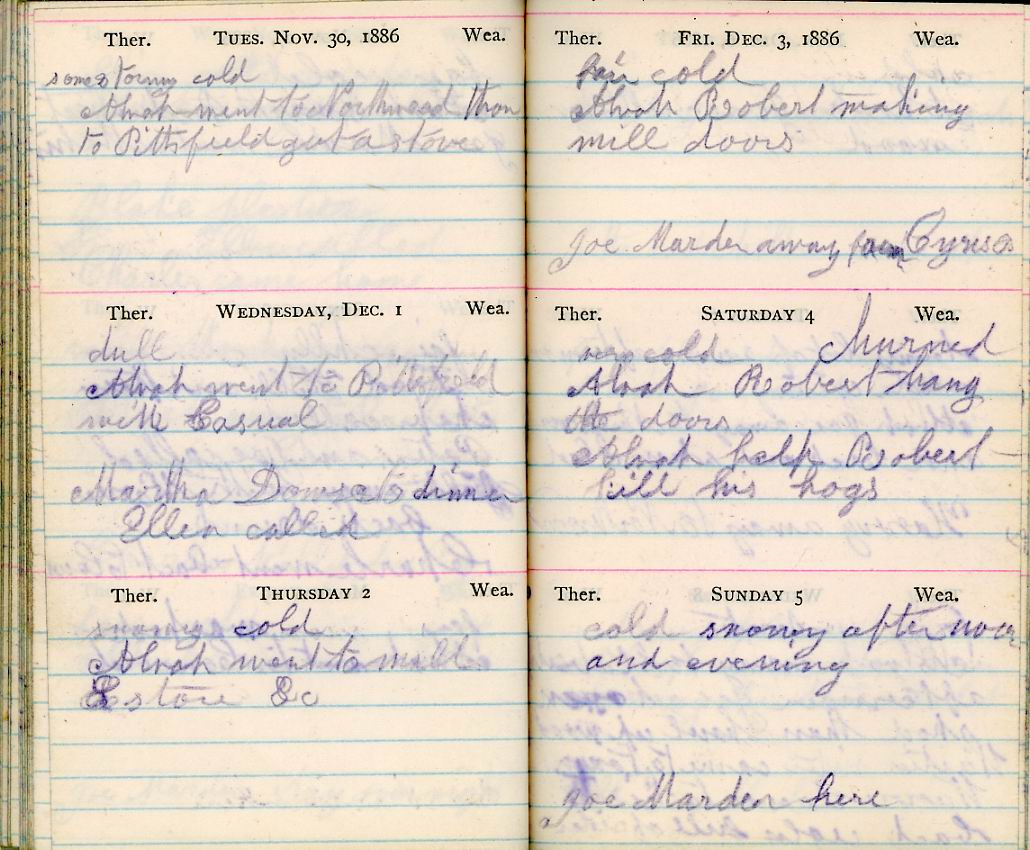 Ther. TUES. NOV. 30, 1886 Wea.
some stormy cold
Alvah went to Northwood then
to Pittsfield got a stove
Ther. WEDNESDAY, DEC. 1 Wea.
dull
Alvah went to Pittsfield
with Casual
Martha Dowse to dinner
Ellen called
Ther. THURSDAY 2 Wea.
snowy cold
Alvah went to mill
& store &c
Ther. FRI. DEC. 3, 1886 Wea.
fair cold
Alvah Robert making
mill doors
Joe Marden away from Cyruses
Ther. SATURDAY 4 Wea.
very cold Churned
Alvah Robert hang
the doors
Alvah help Robert
kill his hogs
Ther. SUNDAY 5 Wea.
cold snowy after noon
and evening
Joe Marden here